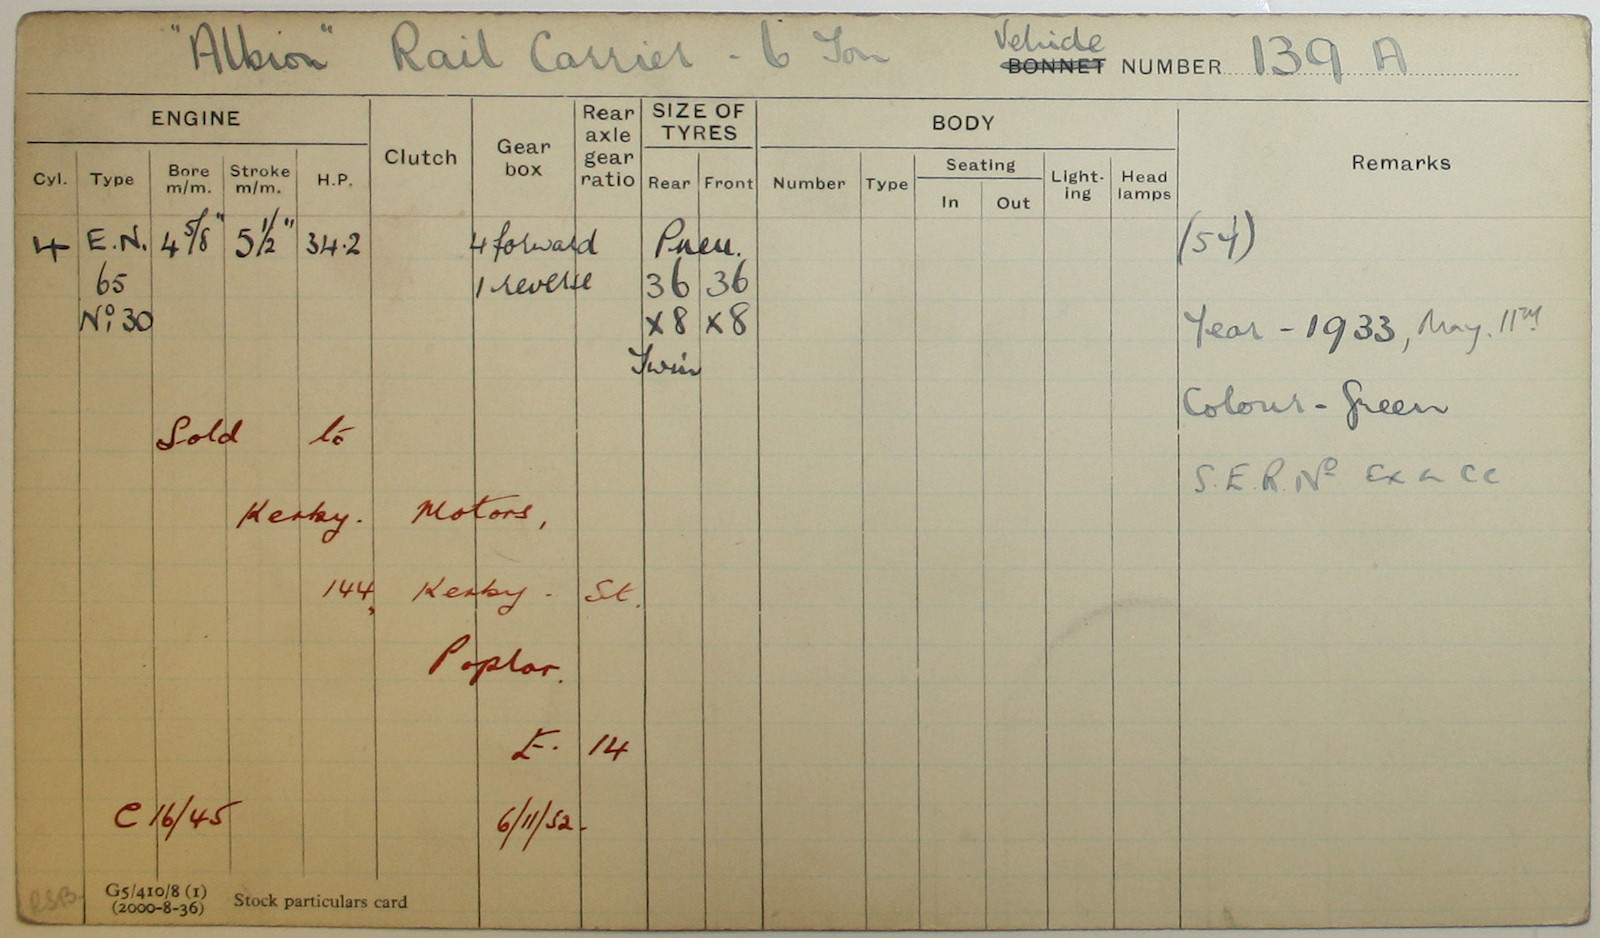 "Albion" Rail Carrier - 6 Ton Vehicle
BONNET NUMBER 139 A
ENGINE Clutch Gear box Rear axle gear ratio SIZE OF TYRES BODY Remarks
Cyl. Type Bore m/m. Stroke m/m. H.P. Rear Front Number Type Seating In Out Light-ing Head lamps
4 E.N. 4 5/8" 5 1/2" 34.2 4 forward Pneu. (54)
65 1 reverse 36 36
No: 30 x8 x8 Year - 1933, May. 11TH
Twin
Colour - Green
Sold to
S.E.R. No
Kerby. Motors,
144, Kerby - St.
Poplar.
E. 14
C 16/45 6/11/52-
RSB.
G5/410/8 (1)
(2000-8-36) Stock particulars card